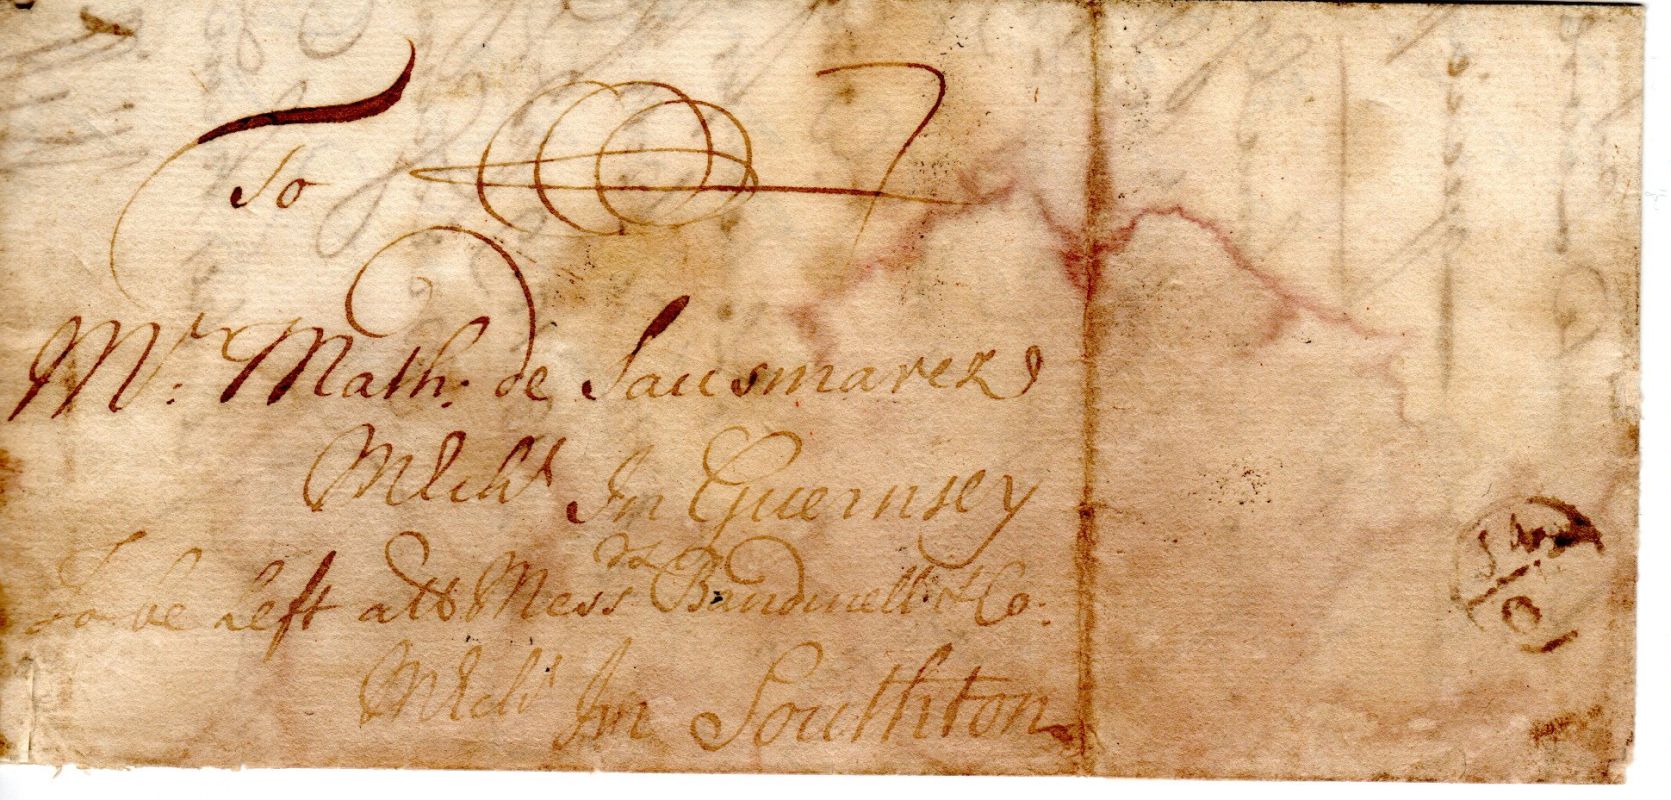 To
Mr. Math: de Sausmarez
Mercht In Guernsey
To be Left att Messrs Bandinell & Co:
Mercht In Southton